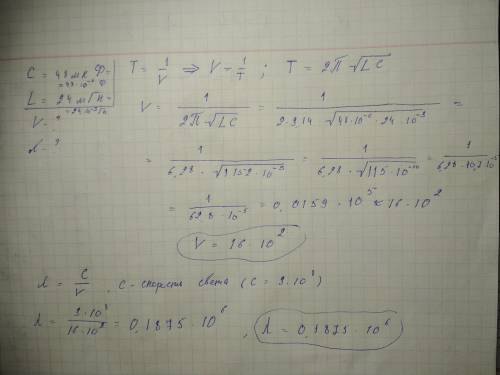 C = 48 мк Ф =
= 48·10⁻⁶ Ф
L = 24 мГн =
= 24·10⁻³ Гн
V - ?
λ - ?
T = 1/V ⇒ V = 1/T ; T = 2π √LC
V = 1/(2π √LC) = 1/(2·3,14 · √(48·10⁻⁶ · 24·10⁻³)) =
= 1/(6,28 · √(1152·10⁻⁹)) = 1/(6,28 · √(115·10⁻¹⁰)) = 1/(6,28 · 10,7·10⁻⁵)
= 1/(62,8 · 10⁻⁵) = 0,0159 · 10⁵ ≈ 16·10²
V = 16·10²
λ = C/V , C - скорость света (C = 3·10⁸)
λ = 3·10⁸/16·10² = 0,1875·10⁶ , λ = 0,1875·10⁶